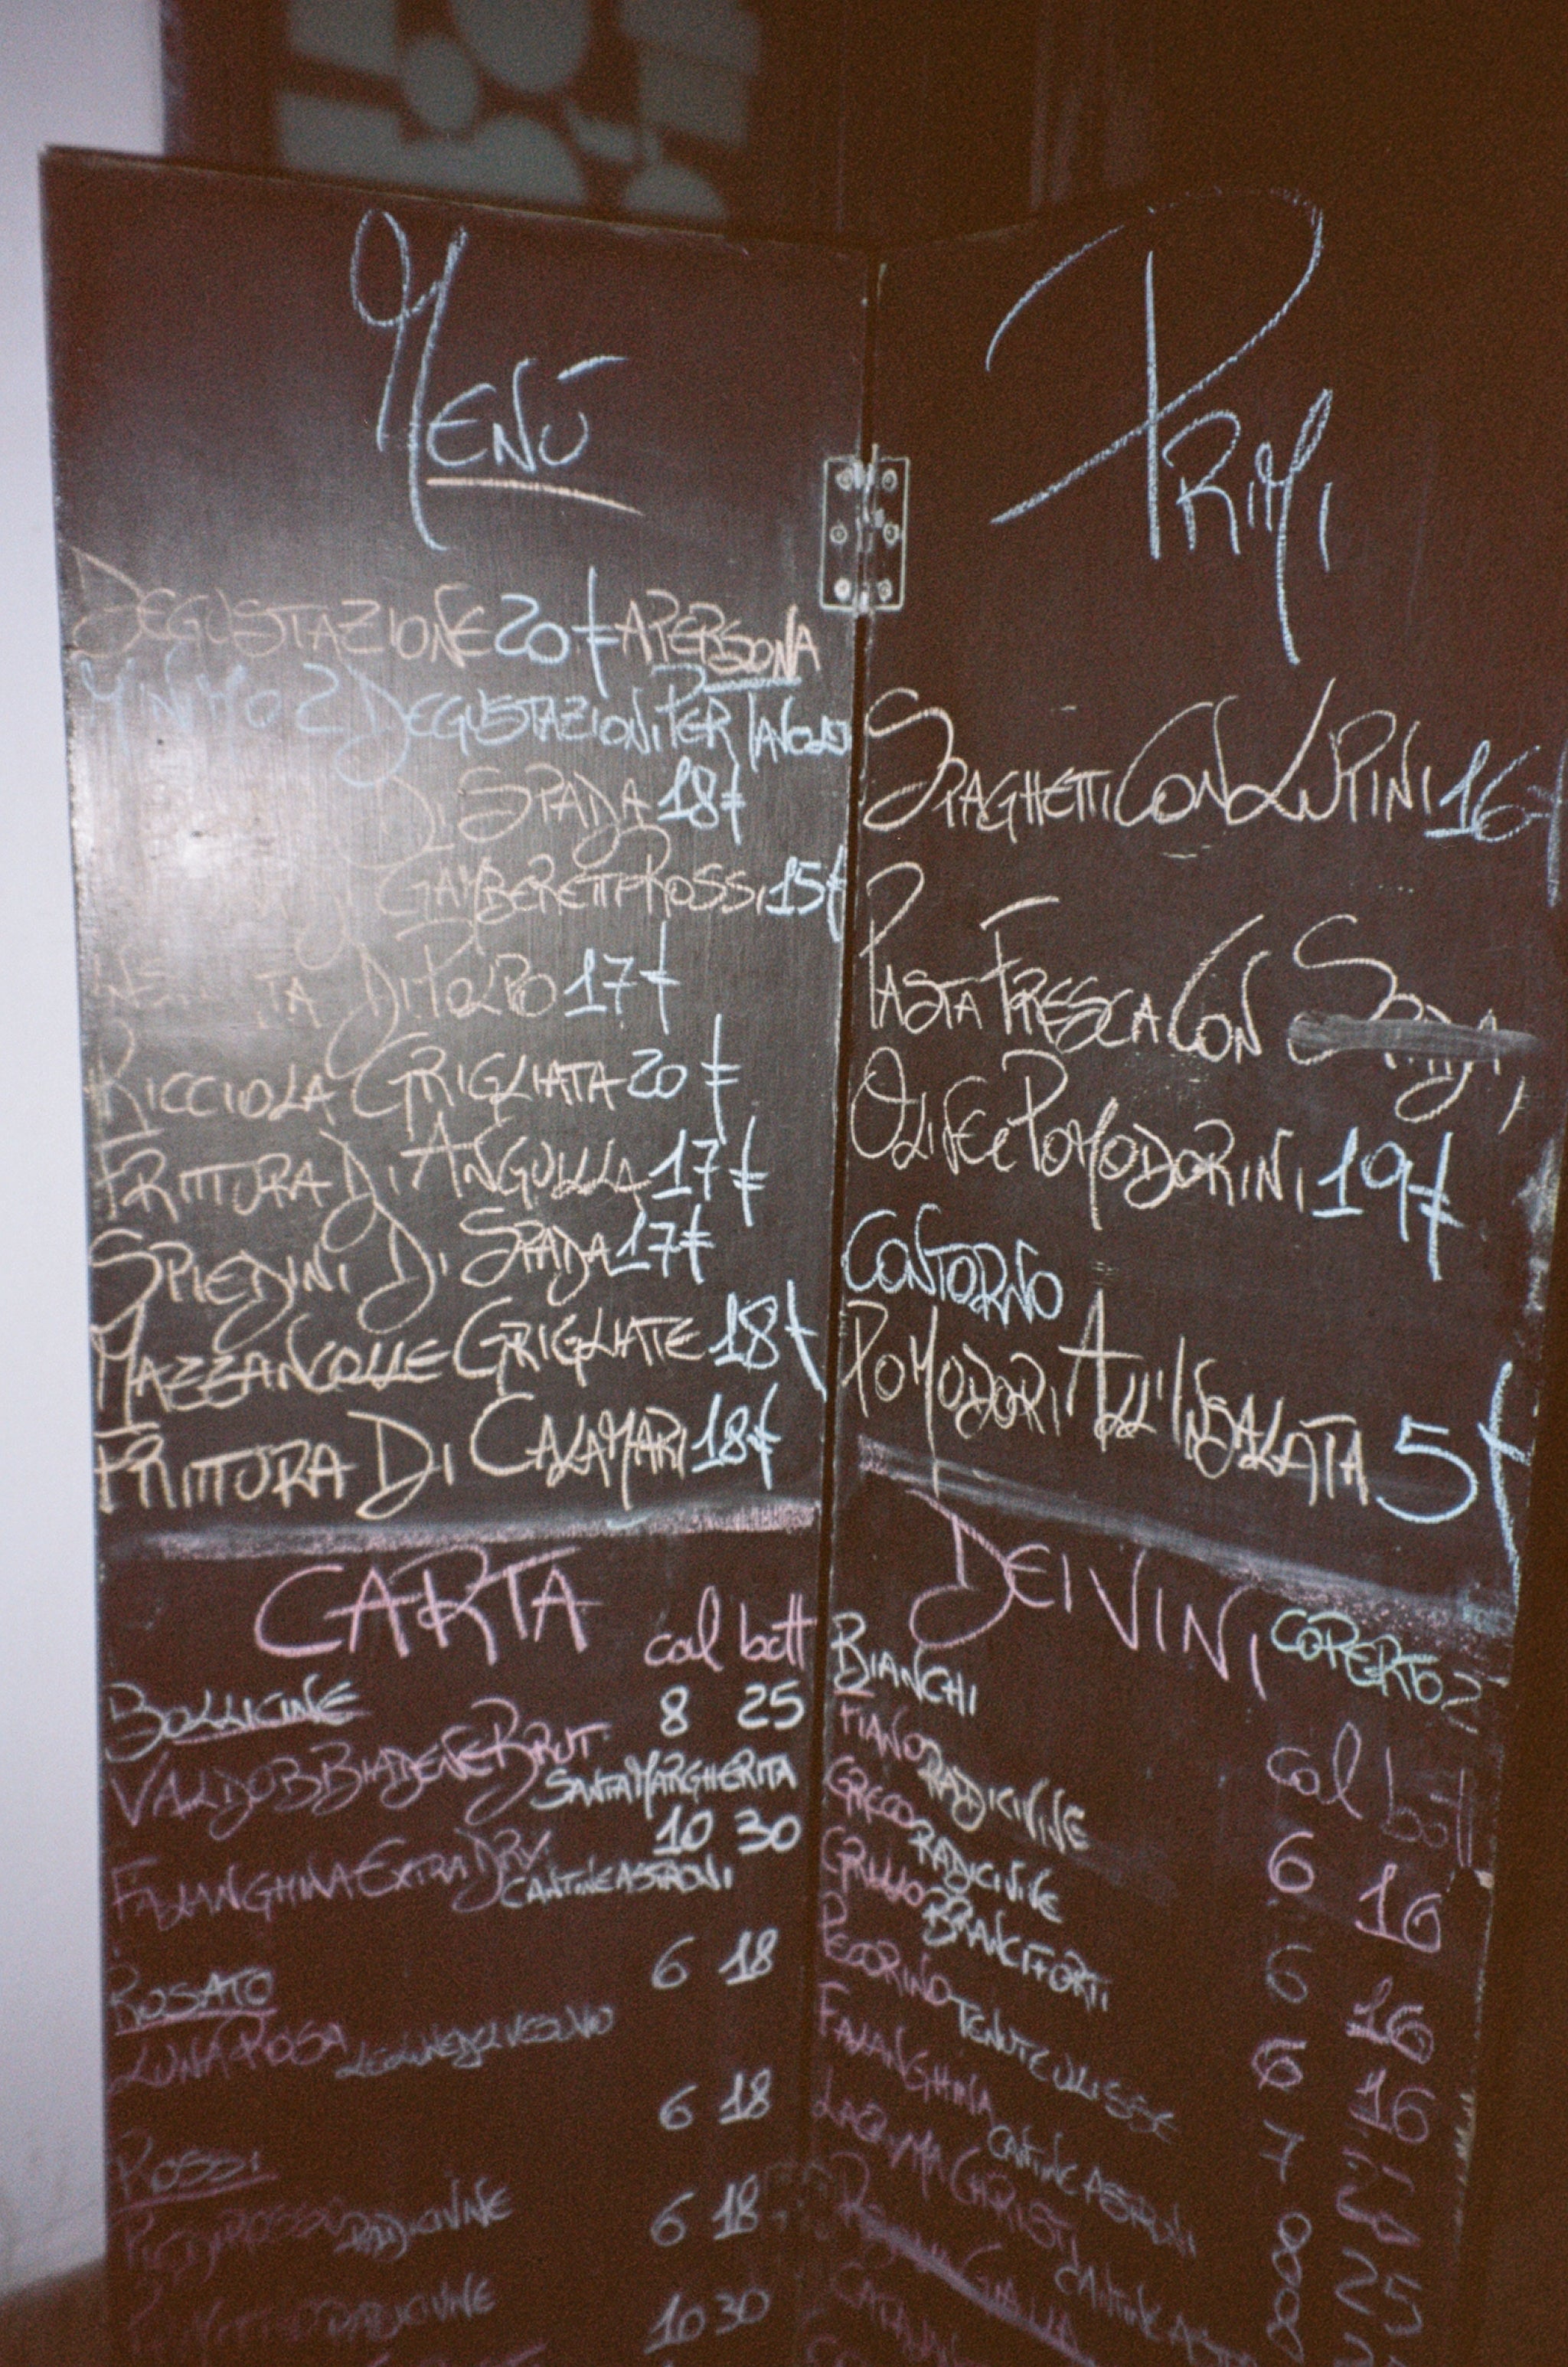 Menù
Degustazione 20€ a persona
Minimo 2 Degustazioni Per Tavolo
Di Spada 18€
Gamberetti Rossi 15€
Di Polpo 17€
Ricciola Grigliata 20€
Frittura Di Anguilla 17€
Spiedini Di Spada 17€
Mazzancolle Grigliate 18€
Frittura Di Calamari 18€
Primi
Spaghetti Con Lupini 16
Pasta Fresca Con Spada,
Olive e Pomodorini 19€
Contorno
Pomodori All'Insalata 5€
CARTA
cal bott
Bollicine 8 25
Valdobbiadene Brut
Santa Margherita
10 30
Falanghina Extra Dry
Cantine Astroni
6 18
Rosato
Luna Rosa
6 18
Rossi
Rosso Radicivine
6 18
Radicivine
10 30
DEI VINI
Coperto 2
Bianchi
cal bott
Fiano Radicivine
6 16
Greco Radicivine
6 16
Grillo Branciforti
6 16
Pecorino Tenute Ulisse
7
Falanghina Cantine Astroni
8 25
Lacryma Christi Cantine
8